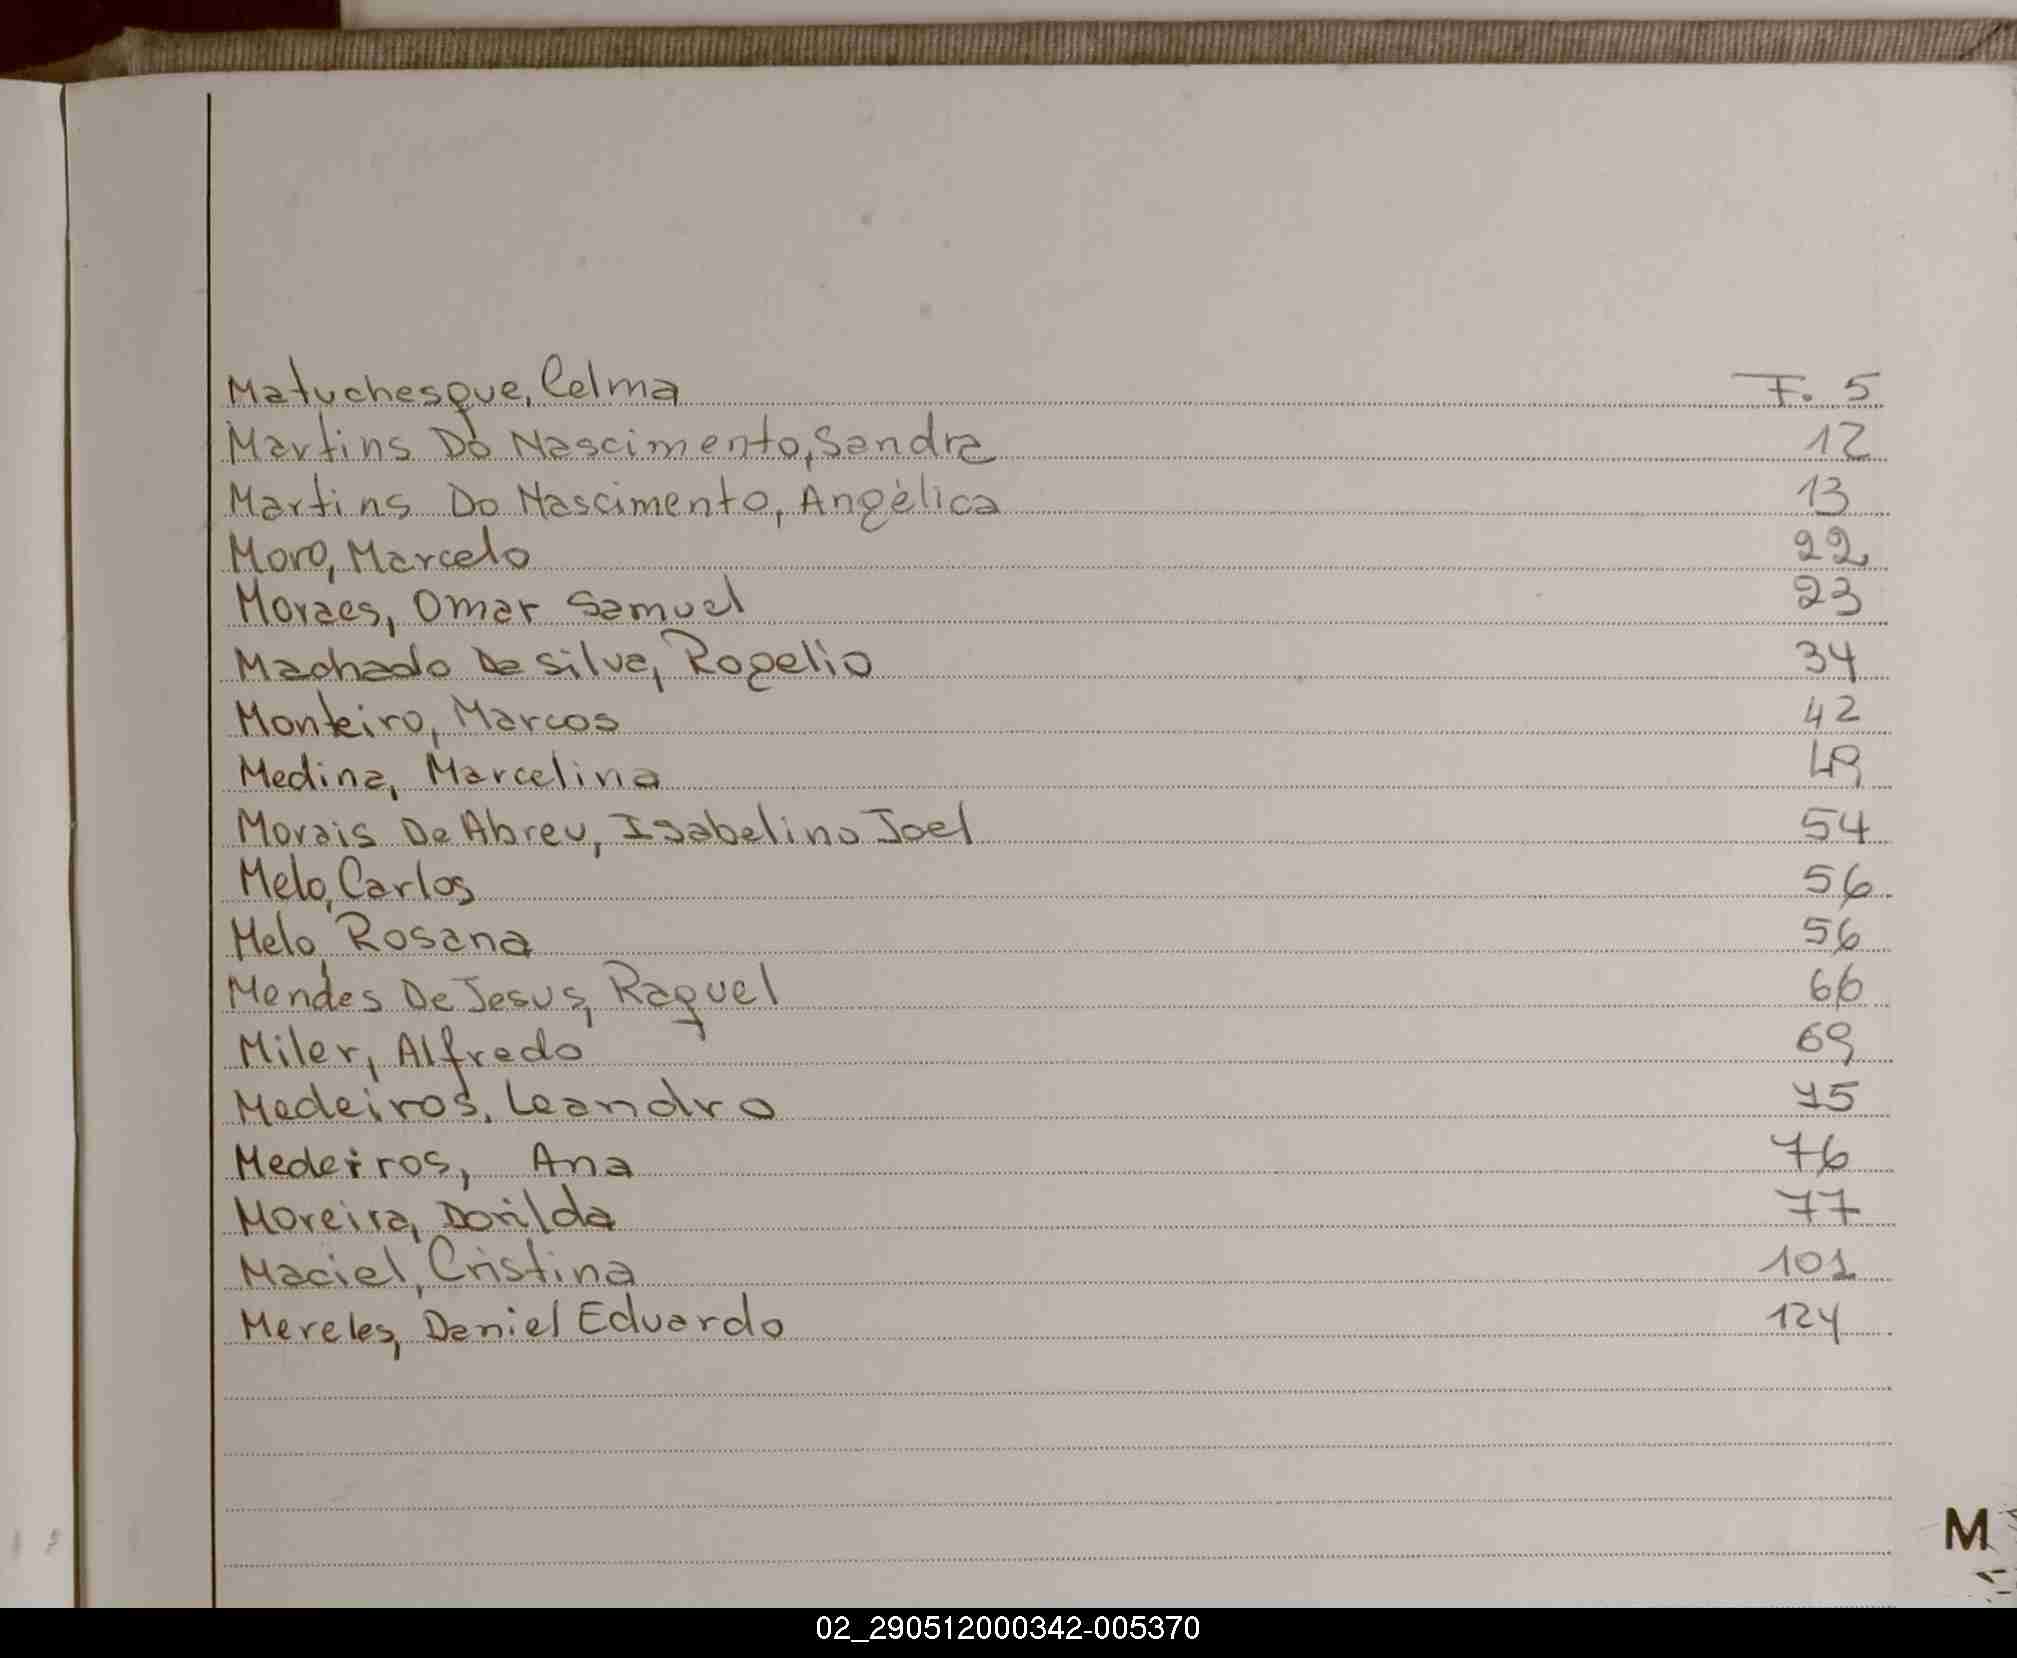 Matuchesque, Celma F. 5
Martins Do Nascimento, Sandra 12
Martins Do Nascimento, Angélica 13
Moro, Marcelo 22
Moraes, Omar Samuel 23
Machado Da Silva, Rogelio 34
Monteiro, Marcos 42
Medina, Marcelina 49
Morais De Abreu, Isabelino Joel 54
Melo, Carlos 56
Melo, Rosana 56
Mendes De Jesus, Raquel 66
Miler, Alfredo 69
Medeiros, Leandro 75
Medeiros, Ana 76
Moreira, Dorilda 77
Maciel, Cristina 101
Mereles, Daniel Eduardo 124
M
02_290512000342-005370